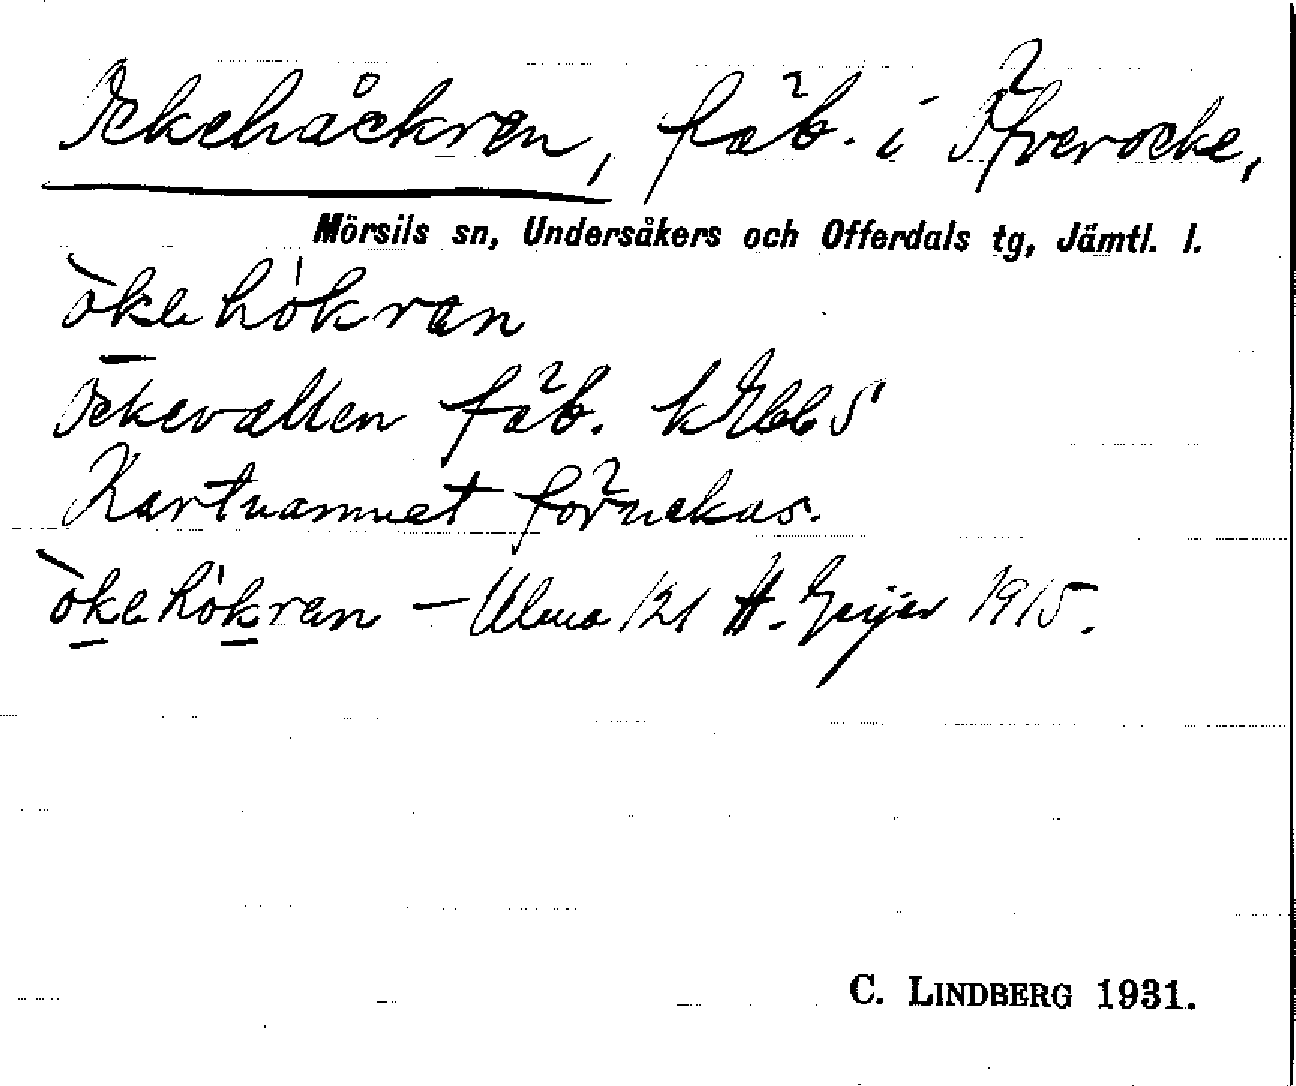 Ockehåckren, fäb. i Överocke,
Mörsils sn, Undersåkers och Offerdals tg, Jämtl. l.
òkehókran
Ockevallen fäb.
Kartnamnet förnekas.
òkehókran – Ulma 121 H. Geijer 1915.
C. LINDBERG 1931.